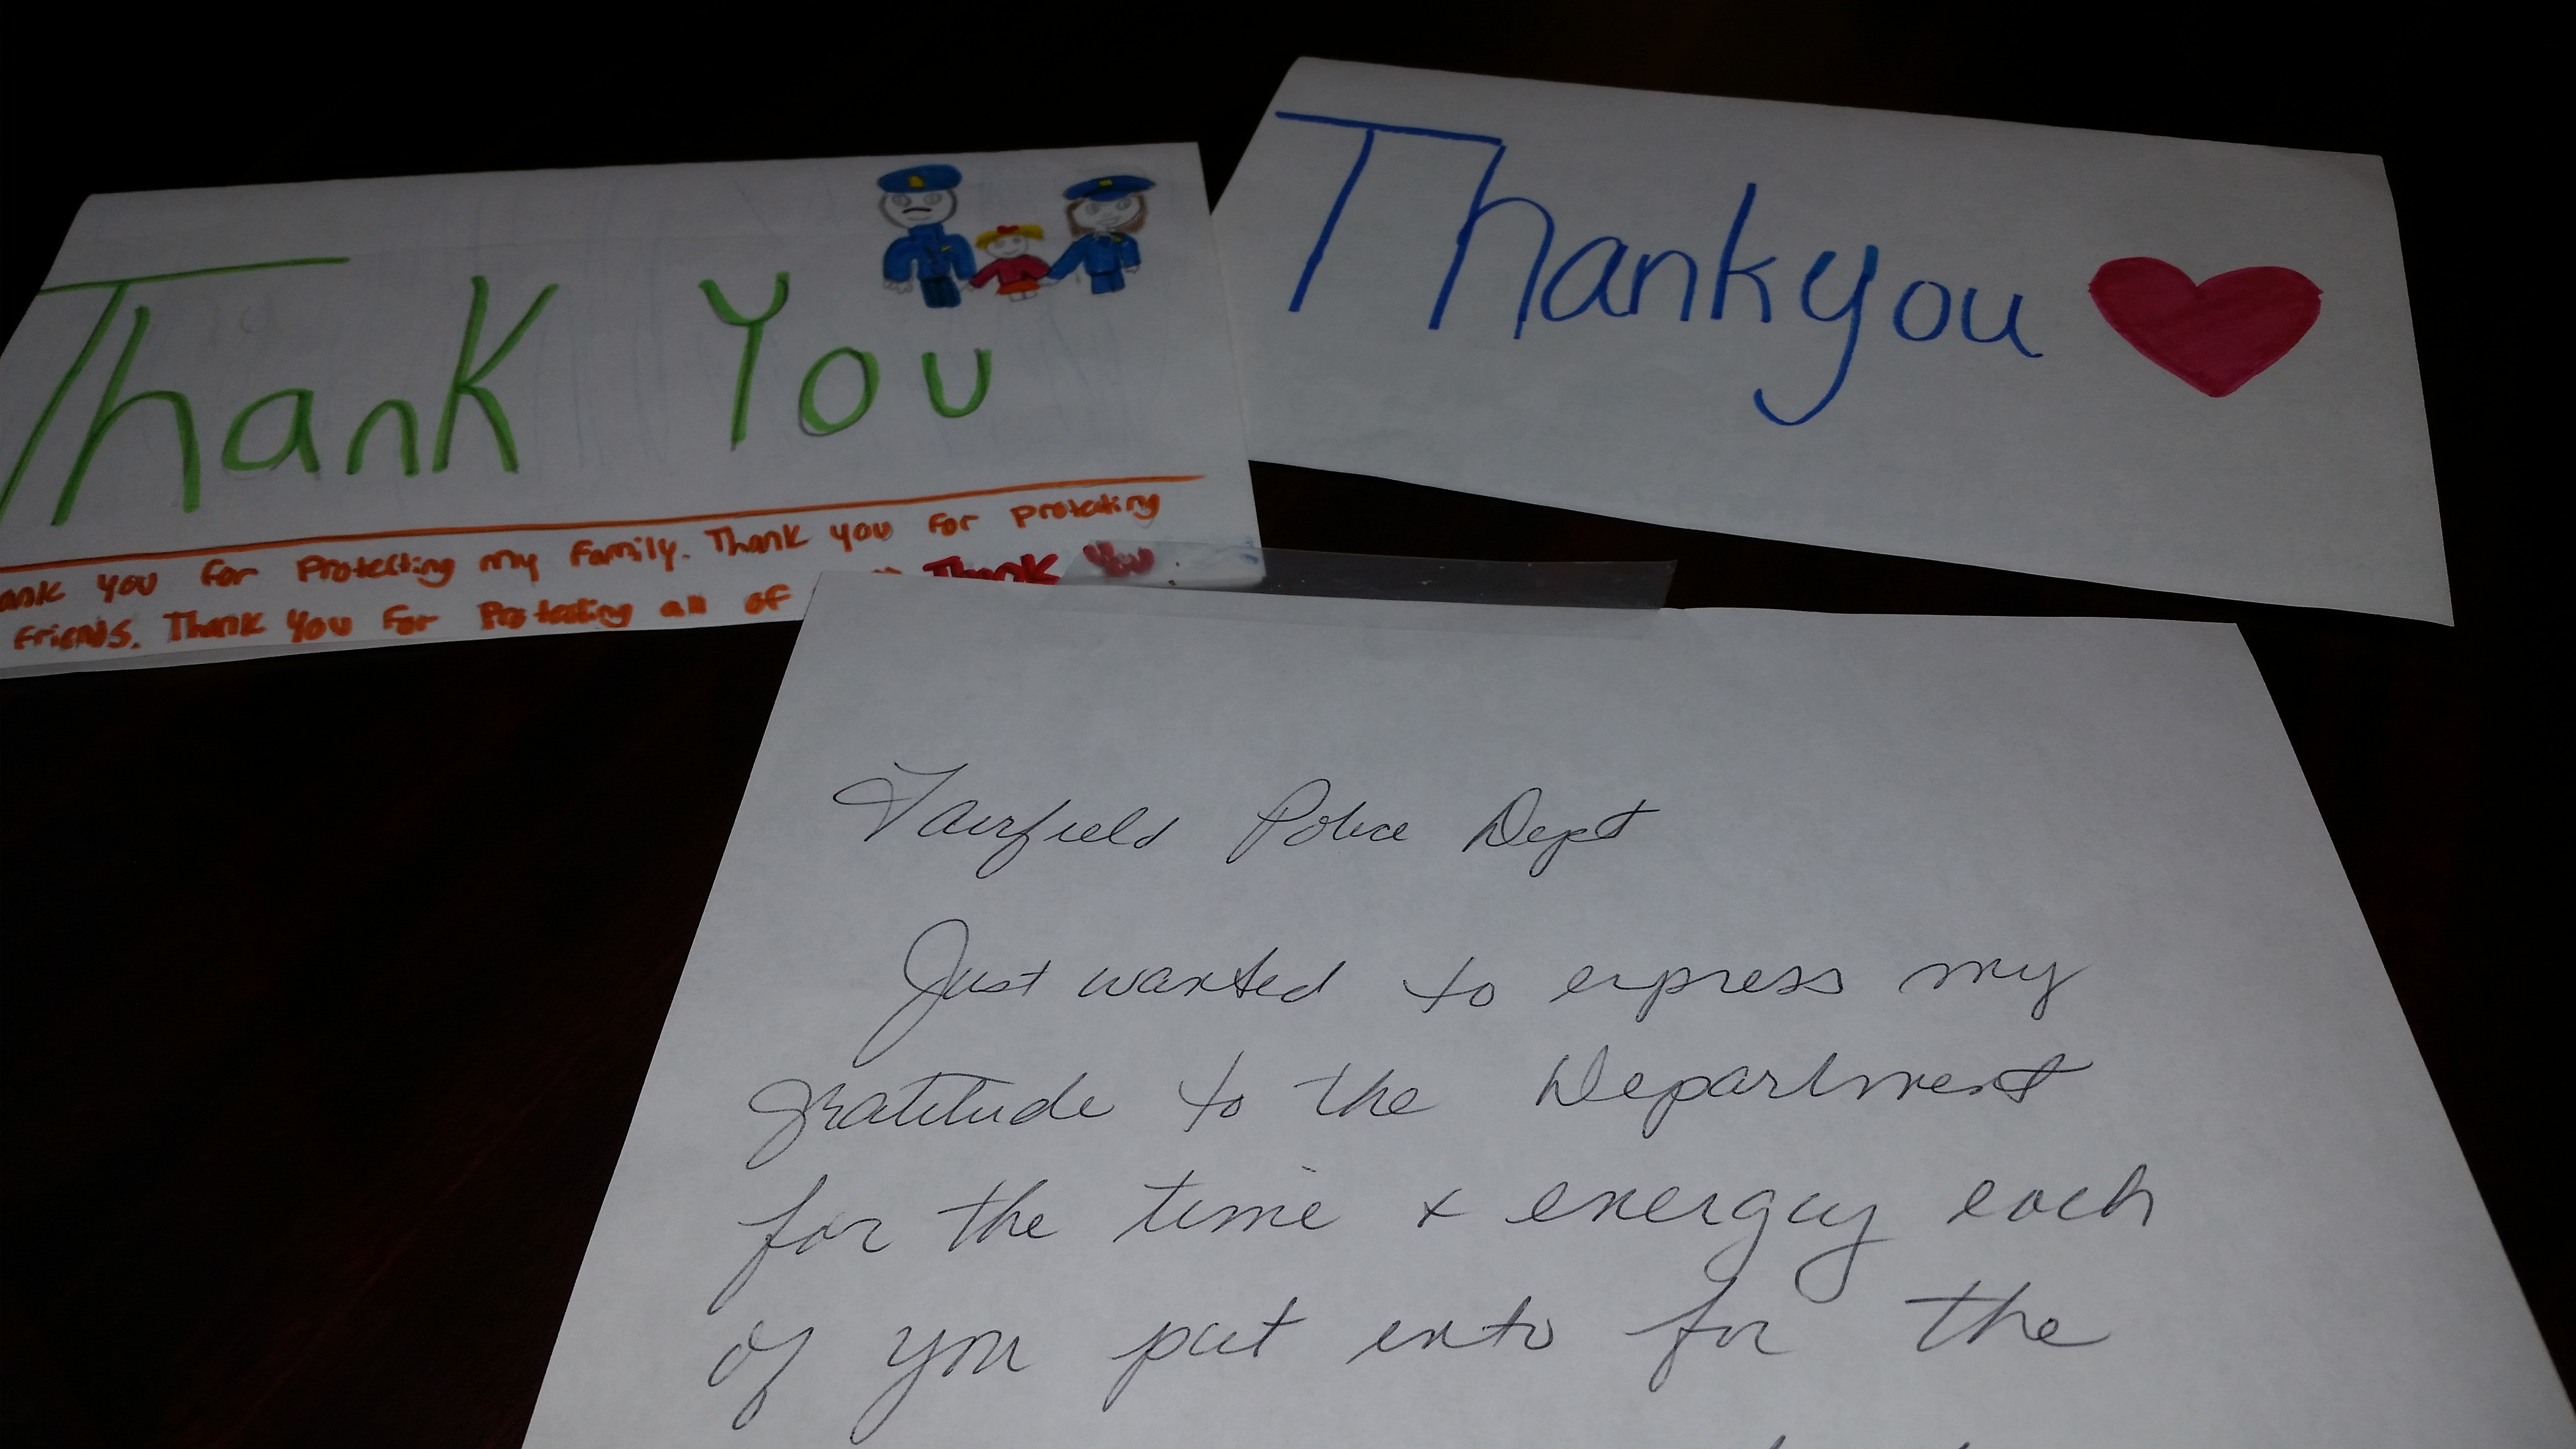 Thank You
ank you for Protecting my Family. Thank you for Protecting
Friends. Thank You For Protecting all of
Thank You
Thankyou
Fairfield Police Dept
Just wanted to express my
gratitude to the Department
for the time + energy each
of you put into for the